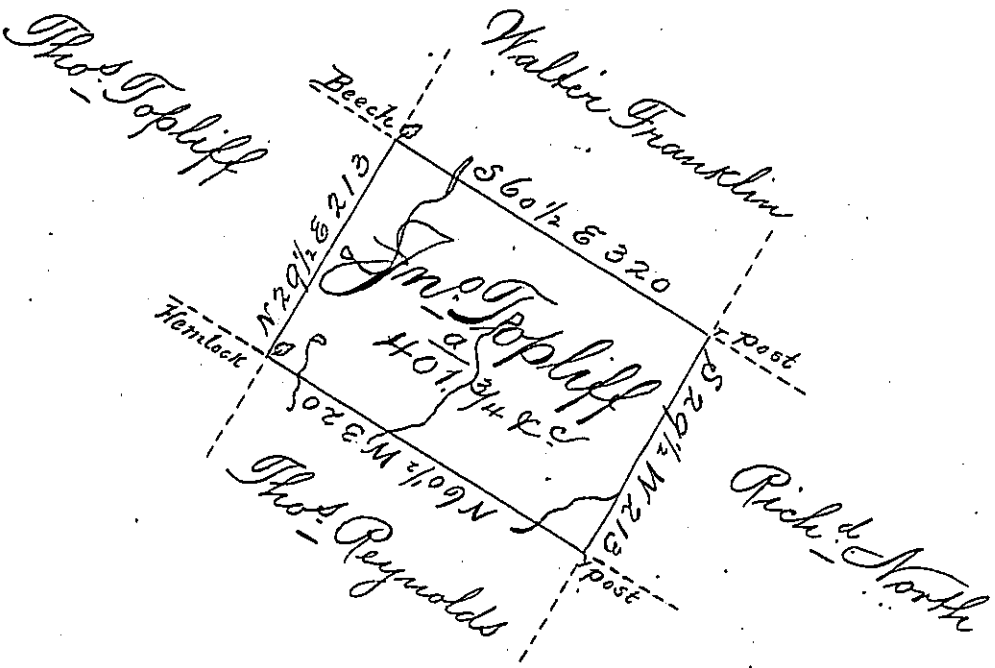 Thos. Topliff
Walter Franklin
Beech
S 60 1/2 E 320
N 29 1/2 E 213
Jno. Topliff
a
401. 3/4 &c
Hemlock
post
S 29 1/2 W 213
N 60 1/2 W 320
Thos. Reynolds
Richd. North
post